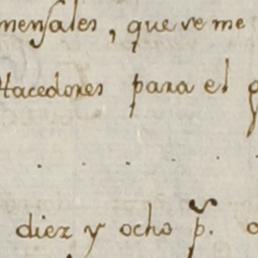 mensales, que se me
Hacedores para el
diez y ocho p.